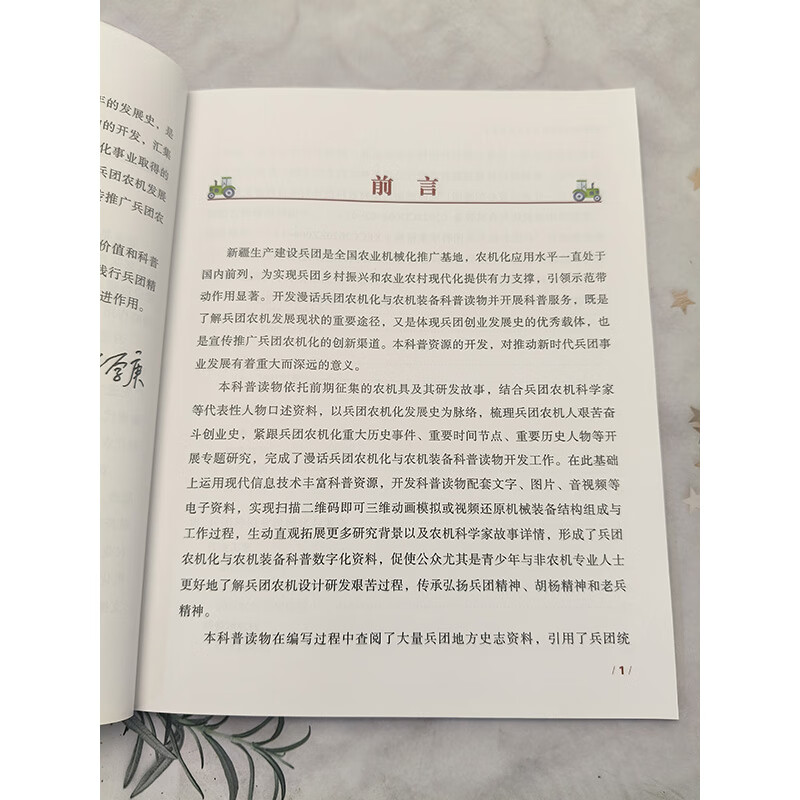 年的发展史，是
的开发，汇集
化事业取得的
兵团农机发展
传推广兵团农
价值和科普
践行兵团精
进作用。
前言
新疆生产建设兵团是全国农业机械化推广基地，农机化应用水平一直处于
国内前列，为实现兵团乡村振兴和农业农村现代化提供有力支撑，引领示范带
动作用显著。开发漫话兵团农机化与农机装备科普读物并开展科普服务，既是
了解兵团农机发展现状的重要途径，又是体现兵团创业发展史的优秀载体，也
是宣传推广兵团农机化的创新渠道。本科普资源的开发，对推动新时代兵团事
业发展有着重大而深远的意义。
本科普读物依托前期征集的农机具及其研发故事，结合兵团农机科学家
等代表性人物口述资料，以兵团农机化发展史为脉络，梳理兵团农机人艰苦奋
斗创业史，紧跟兵团农机化重大历史事件、重要时间节点、重要历史人物等开
展专题研究，完成了漫话兵团农机化与农机装备科普读物开发工作。在此基础
上运用现代信息技术丰富科普资源，开发科普读物配套文字、图片、音视频等
电子资料，实现扫描二维码即可三维动画模拟或视频还原机械装备结构组成与
工作过程，生动直观拓展更多研究背景以及农机科学家故事详情，形成了兵团
农机化与农机装备科普数字化资料，促使公众尤其是青少年与非农机专业人士
更好地了解兵团农机设计研发艰苦过程，传承弘扬兵团精神、胡杨精神和老兵
精神。
本科普读物在编写过程中查阅了大量兵团地方史志资料，引用了兵团统
/ 1 /